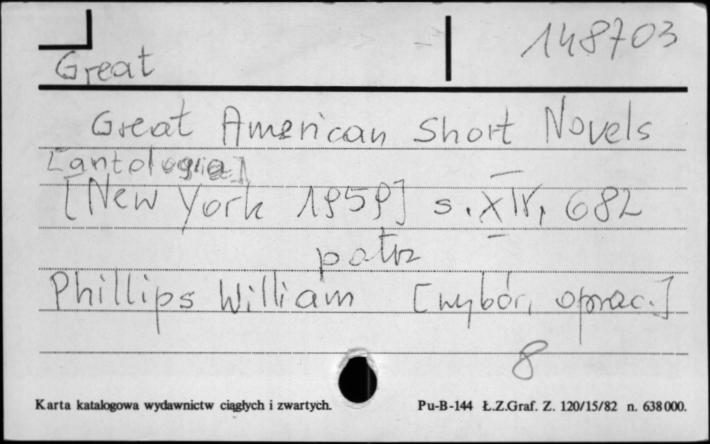 148703
Great
Great American Short Novels
[antologia]
[New York 1959] s. XIV, 682
patrz
Phillips William [wybór, oprac.]
8
Karta katalogowa wydawnictw ciągłych i zwartych.
Pu-B-144 Ł.Z.Graf. Z. 120/15/82 n. 638000.